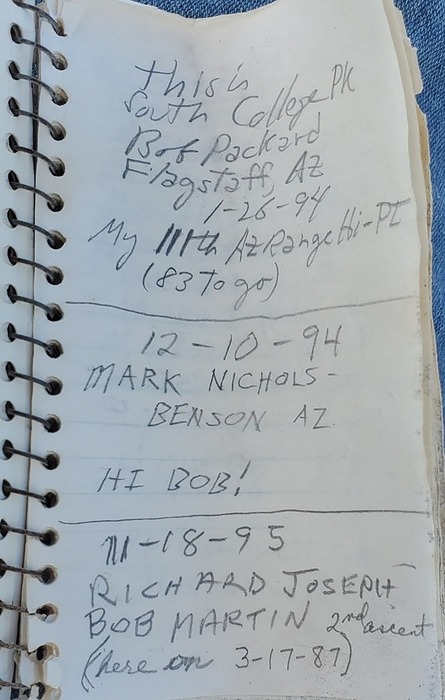 This is
South College PK
Bob Packard
Flagstaff, AZ
1-26-94
My 111th AZ Range Hi-PT
(83 to go)
12-10-94
MARK NICHOLS-
BENSON AZ.
HI BOB!
11-18-95
RICHARD JOSEPH
BOB MARTIN 2nd ascent
(here on 3-17-87)